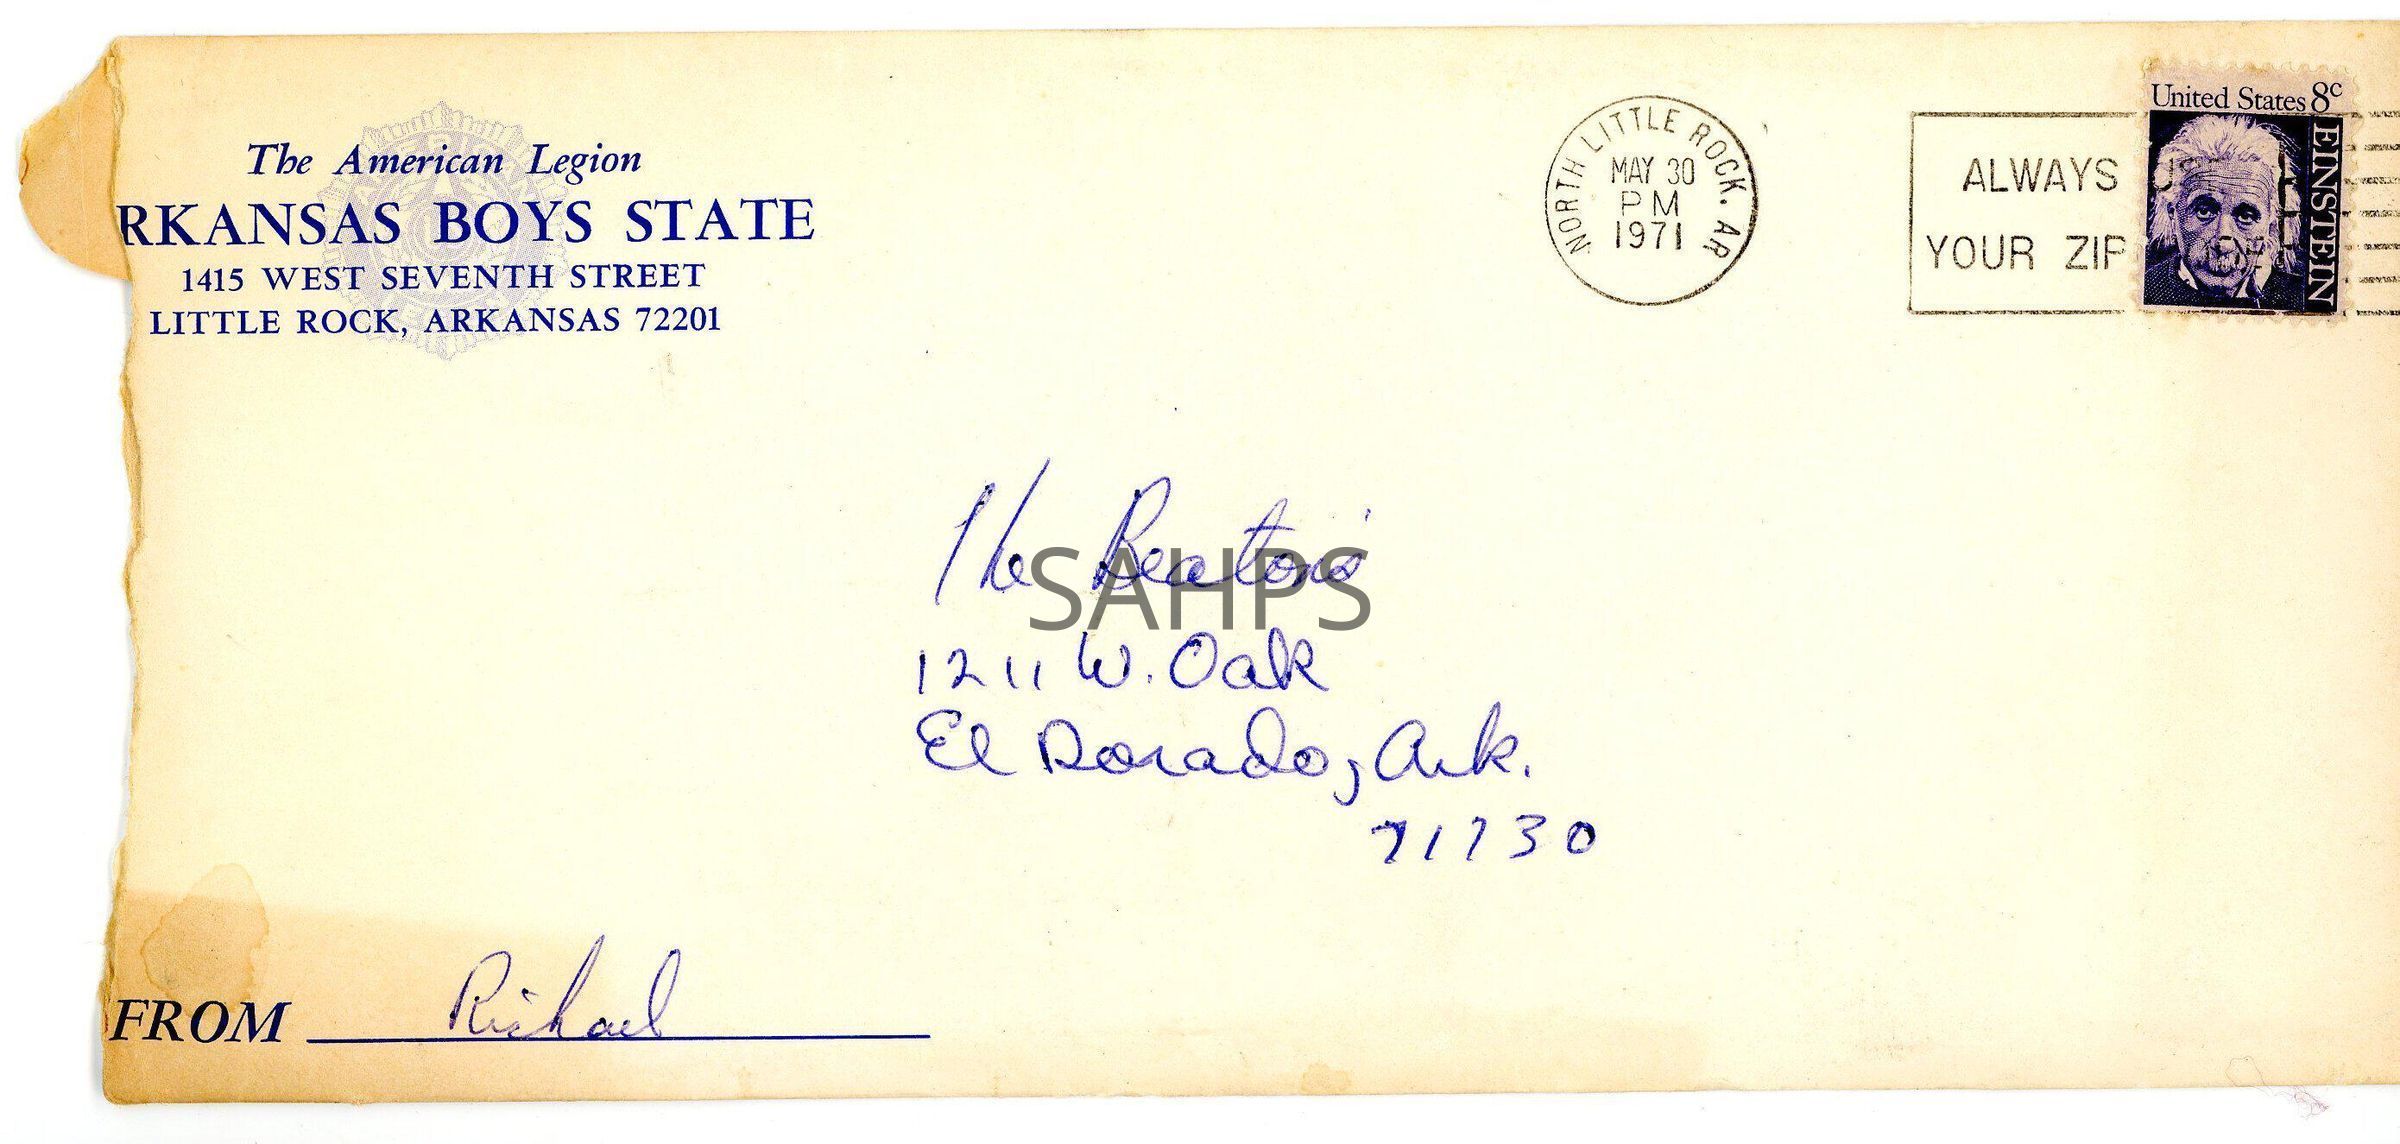 The American Legion
RKANSAS BOYS STATE
1415 WEST SEVENTH STREET
LITTLE ROCK, ARKANSAS 72201
NORTH LITTLE ROCK, AR
MAY 30
PM
1971
ALWAYS USE
YOUR ZIP
United States 8c
EINSTEIN
The Beaton's
SAHPS
1211 W. Oak
El Dorado, Ark.
71730
FROM Richael